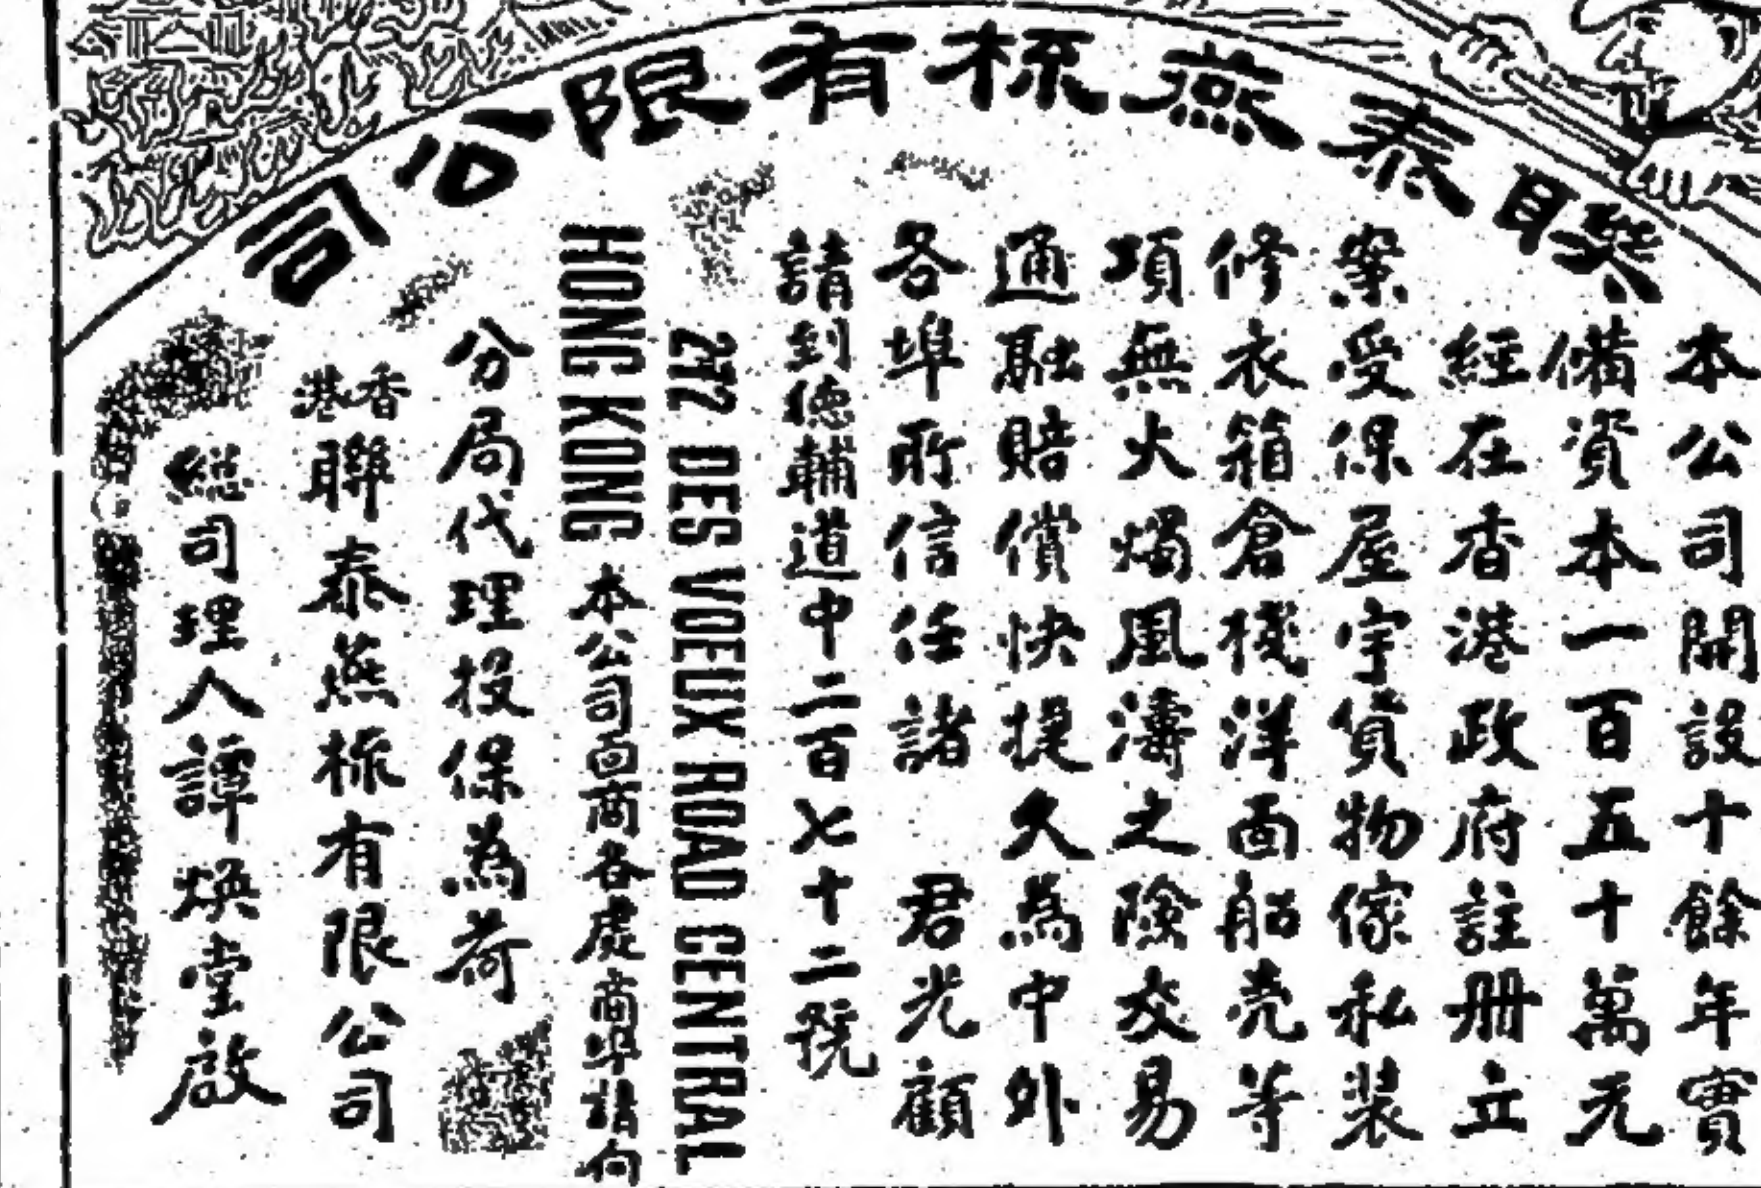 聯泰燕梳有限公司
本公司開設十餘年實
備資本一百五十萬元
經在香港政府註册立
案受保屋宇貨物傢私装
修衣箱倉棧洋面船壳等
項無火燭風濤之險交易
通融賠償快捷久為中外
各埠所信任諸 君光顧
請到德輔道中二百七十二號
272 DES VOEUX ROAD CENTRAL
HONG KONG 本公司面商各處商埠請向
分局代理投保為荷
香港聯泰燕梳有限公司
総司理人譚煥堂啟